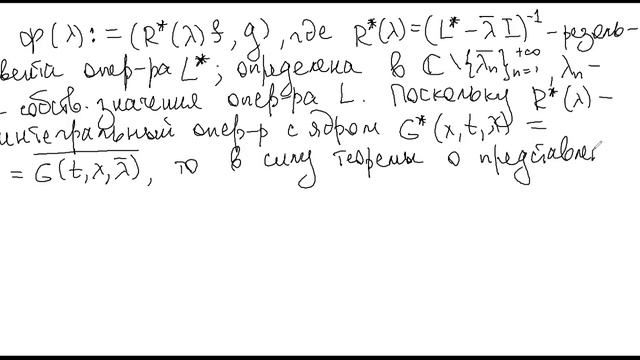 Φ(λ) := (R*(λ) f, g), где R*(λ) = (L* - λ̅ I)^{-1} - резоль-
вента опер-ра L*; определена в ℂ \ {λ̅_n}_{n=1}^{+∞}, λ_n -
- собств. значения опер-ра L. Поскольку R*(λ) -
интегральный опер-р с ядром G*(x, t, λ) =
= \overline{G(t, x, λ̅)}, то в силу теоремы о представле